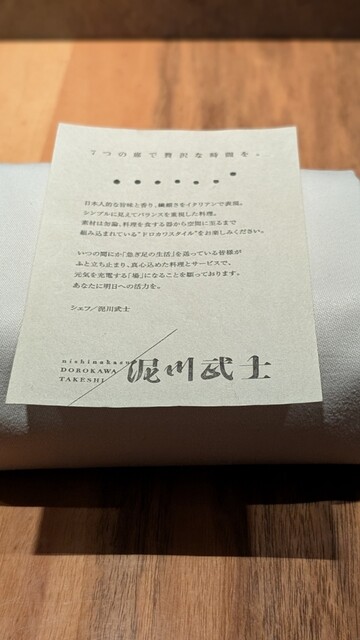 7つの扉で贅沢な時間を。
日本人的な旨味と香り、繊細さをイタリアンで表現。
シンプルに見えてバランスを重視した料理。
素材は勿論、料理を食する器から空間に至るまで
組み込まれている"ドロカワスタイル"をお楽しみください。
いつの間にか「急ぎ足の生活」を送っている皆様が
ふと立ち止まり、真心込めた料理とサービスで、
元気を充電する「場」になることを願っております。
あなたに明日への活力を。
シェフ/泥川武士
nishinakasu
DOROKAWA
TAKESHI
泥川武士